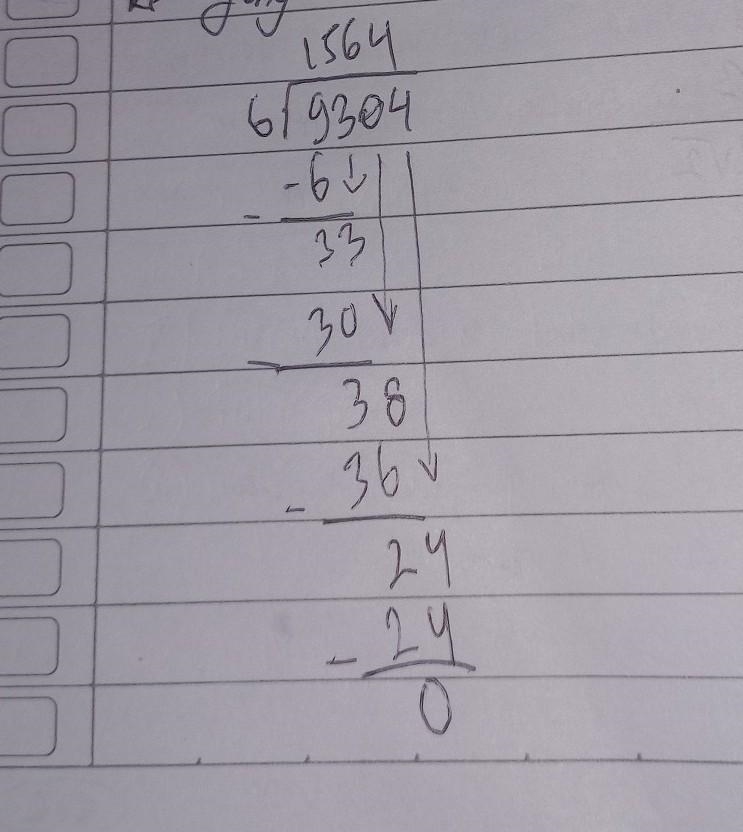 1564
6√9304
-6
33
30
38
36
-
24
- 24
0